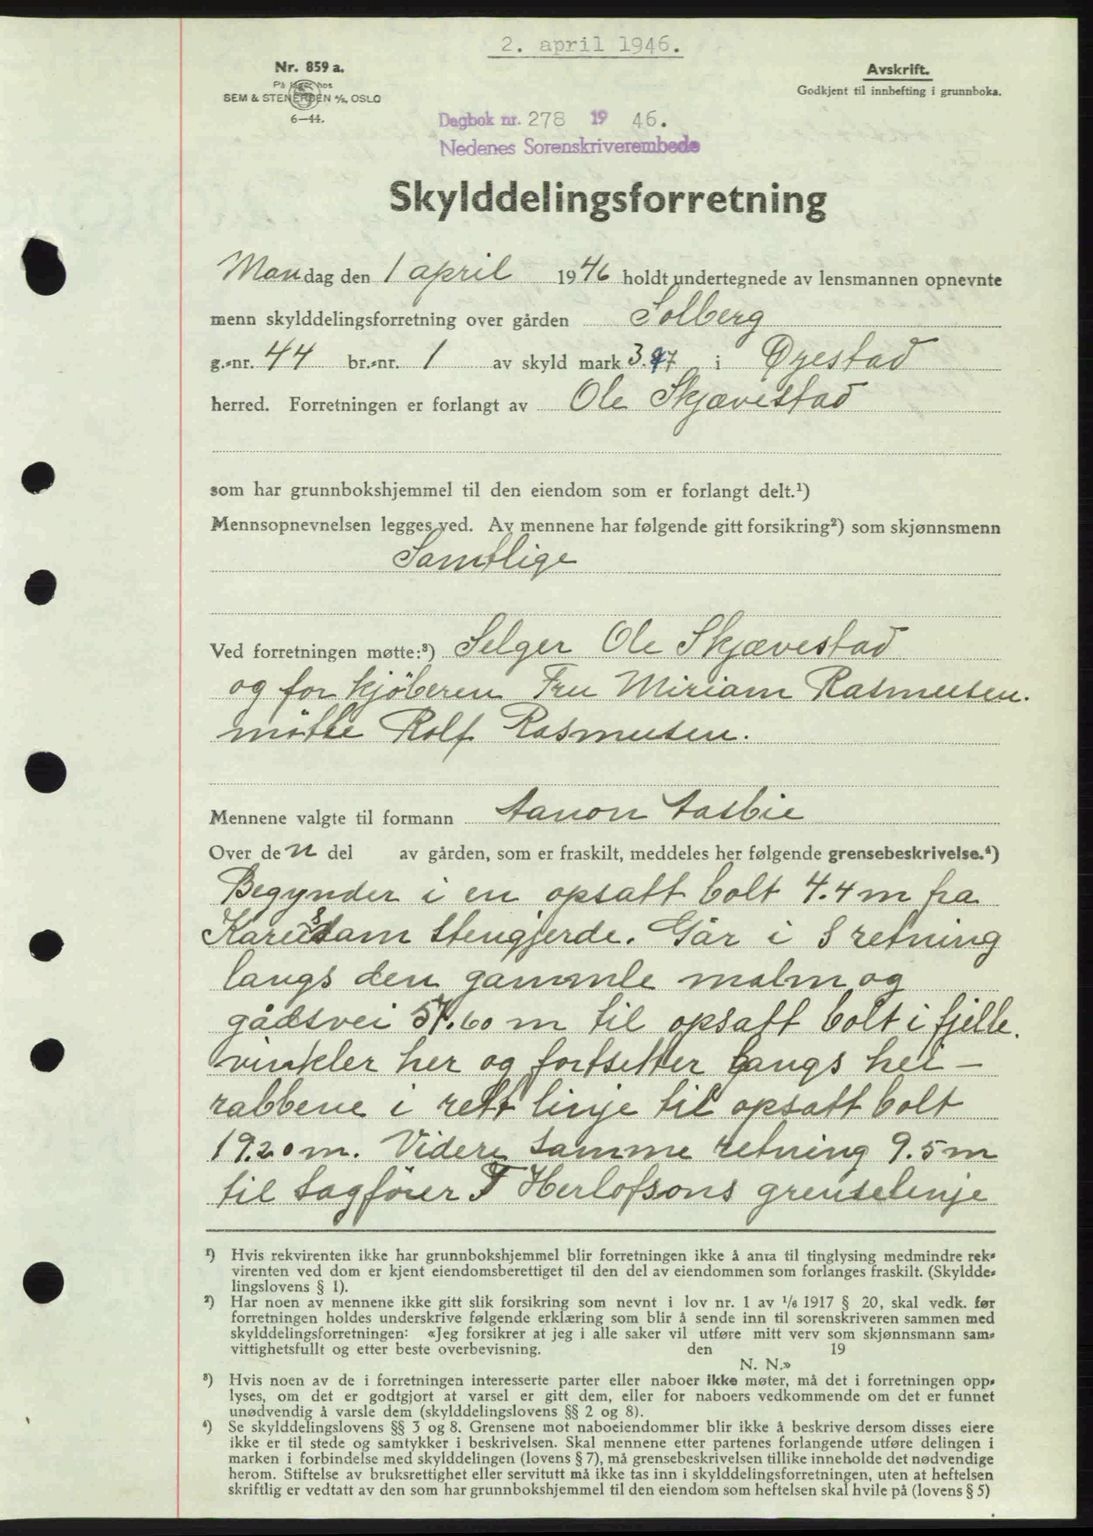 2. april 1946.
Nr. 859 a.
På lager hos
SEM & STENERSEN A/S, OSLO
6—44.
Avskrift.
Godkjent til innhefting i grunnboka.
Dagbok nr. 278 1946.
Nedenes Sorenskriverembede
Skylddelingsforretning
Mandag den 1 april 1946 holdt undertegnede av lensmannen opnevnte
menn skylddelingsforretning over gården Solberg
g.-nr. 44 br.-nr. 1 av skyld mark 3.97 i Øyestad
herred. Forretningen er forlangt av Ole Skjævestad
som har grunnbokshjemmel til den eiendom som er forlangt delt.¹)
Mennsopnevnelsen legges ved. Av mennene har følgende gitt forsikring²) som skjønnsmenn
Samtlige
Ved forretningen møtte:³) Selger Ole Skjævestad
og for kjöberen Fru Miriam Rasmusen.
mötte Rolf Rasmusen.
Mennene valgte til formann Aanon Aasbie
Over den del av gården, som er fraskilt, meddeles her følgende grensebeskrivelse.⁴)
Begynder i en opsatt bolt 4.4 m fra
stengjerde. Går i S retning
langs den gammle malm og
gårdsvei 57.60 m til opsatt bolt i fjelle.
vinkler her og fortsetter langs hei-
rabbene i rett linje til opsatt bolt
19.20 m. Videre samme retning 9.5 m
til sagfører F Herlofsons grenselinje
¹) Hvis rekvirenten ikke har grunnbokshjemmel blir forretningen ikke å anta til tinglysing medmindre rek-
virenten ved dom er kjent eiendomsberettiget til den del av eiendommen som forlanges fraskilt. (Skyldde-
lingslovens § 1).
²) Har noen av mennene ikke gitt slik forsikring som nevnt i lov nr. 1 av 1/6 1917 § 20, skal vedk. før
forretningen holdes underskrive følgende erklæring som blir å sende inn til sorenskriveren sammen med
skylddelingsforretningen: «Jeg forsikrer at jeg i alle saker vil utføre mitt verv som skjønnsmann sam-
vittighetsfullt og etter beste overbevisning. den 19
N. N.»
³) Hvis noen av de i forretningen interesserte parter eller naboer ikke møter, må det i forretningen opp-
lyses, om det er godtgjort at varsel er gitt dem, eller for naboers vedkommende om det er funnet
unødvendig å varsle dem (skylddelingslovens §§ 2 og 8).
⁴) Se skylddelingslovens §§ 3 og 8. Grensene mot naboeiendommer blir ikke å beskrive dersom disses eiere
ikke er til stede og samtykker i beskrivelsen. Skal mennene etter partenes forlangende utføre delingen i
marken i forbindelse med skylddelingen (lovens § 7), må grensebeskrivelsen tillike inneholde det nødvendige
herom. Stiftelse av bruksrettighet eller servitutt må ikke tas inn i skylddelingsforretningen, uten at heftelsen
skriftlig er vedtatt av den som har grunnbokshjemmel til den eiendom som heftelsen skal hvile på (lovens § 5)